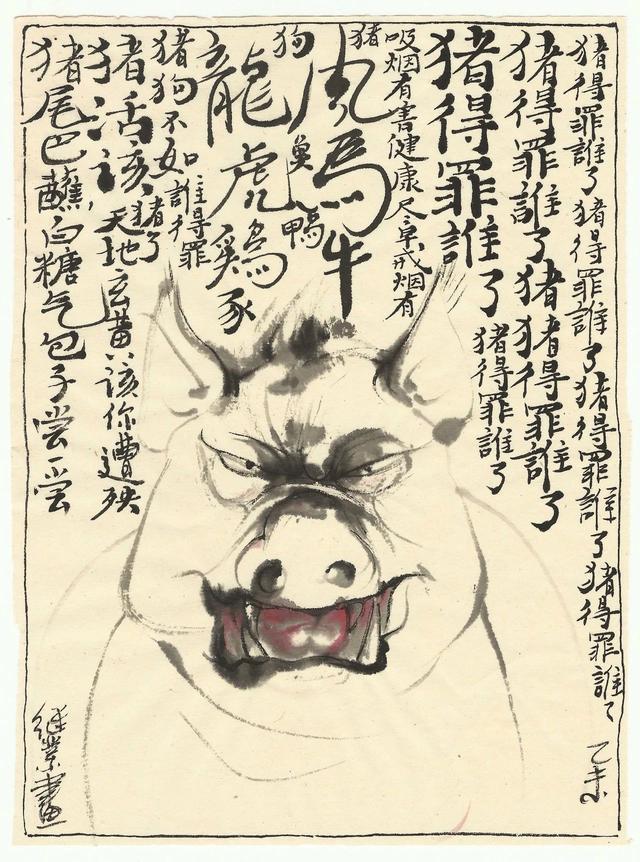 猪得罪誰了猪得罪誰了猪得罪誰了猪得罪誰了
乙未
猪得罪誰了猪猪得罪誰了
猪得罪誰了
猪得罪誰了
吸烟有害健康尽早戒烟有
猪
風馬牛
狗
鸭
龍虎鸡豕
猪狗不如
誰得罪
猪了
猪活该天地玄黄该你遭殃
猪尾巴蘸白糖气包子尝一尝
继業畫